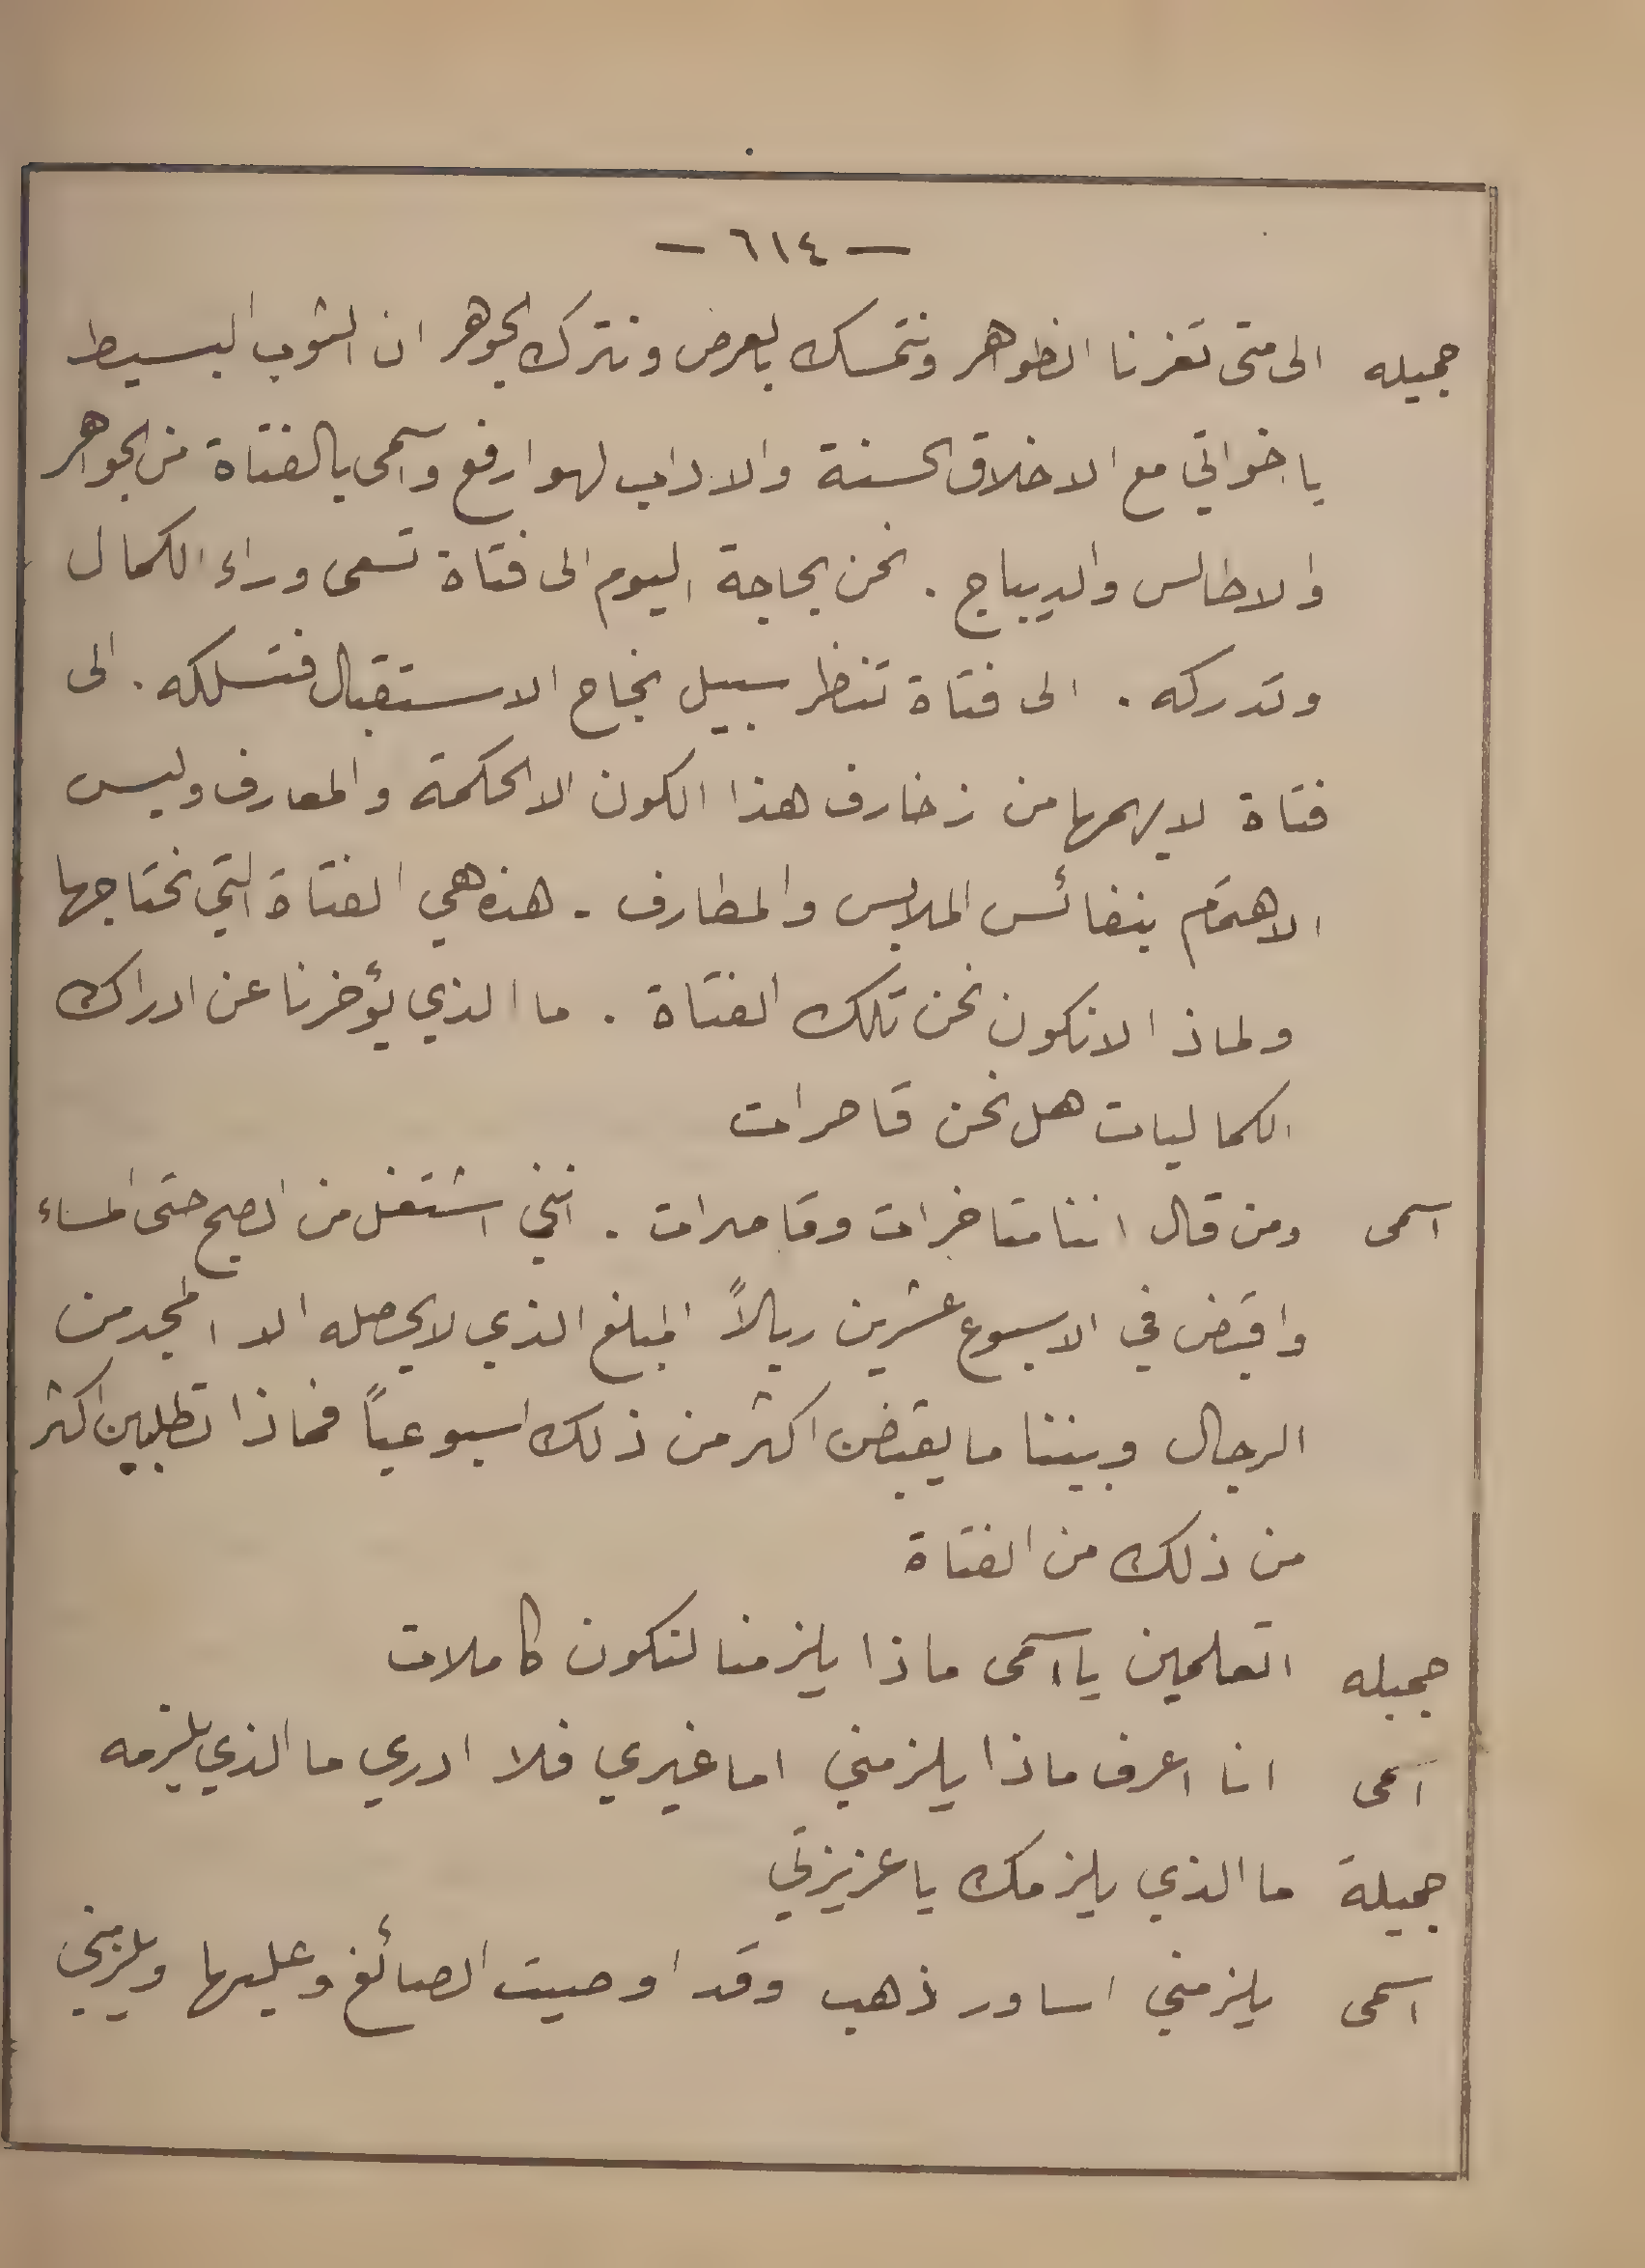 — ٦١٤ —
جميله الى متى تغرنا الظواهر ونتمسك بالعرض ونترك الجوهر ان الثوب البسيط
ياخواتي مع الاخلاق الحسنة والاداب لهو ارفع واسمى بالفتاة من الجواهر
والاطالس والديباج . نحن بحاجة اليوم الى فتاة تسعى وراء الكمال
وتدركه . الى فتاة تنظر سبيل نجاح الاستقبال فتسلكه . الى
فتاة لا يهمها من زخارف هذا الكون الا الحكمة والمعارف وليس
الاهتمام بنفائس الملابس والمطارف - هذه هي الفتاة التي نحتاجها
ولماذا لانكون نحن تلك الفتاة . ما الذي يؤخرنا عن ادراك
الكماليات هل نحن قاصرات
اسمى ومن قال اننا متاخرات وقاصرات . انني اشتغل من الصبح حتى المساء
واقبض في الاسبوع عشرين ريالاً المبلغ الذي لا يحصله الا المجد من
الرجال وبيننا ما يقبضن اكثر من ذلك اسبوعياً فماذا تطلبين اكثر
من ذلك من الفتاة
جميله اتعلمين يا اسمى ماذا يلزمنا لنكون كاملات
اسمى انا اعرف ماذا يلزمني اما غيري فلا ادري ما الذي يلزمه
جميلة ما الذي يلزمك يا عزيزتي
اسمى يلزمني اساور ذهب وقد اوصيت الصائغ وعليها ويلزمني